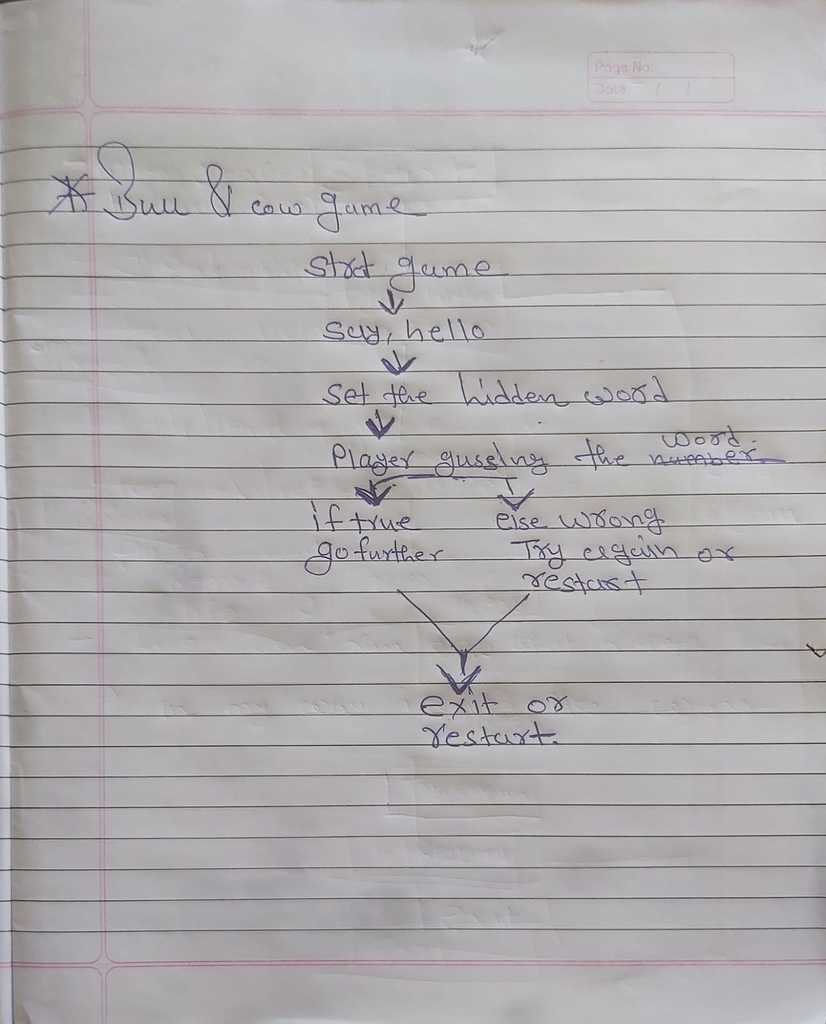 Page No.
Date / /
* Bull & cow game
Strat game
say, hello
set the hidden word
Player gussing the number word.
if true else wrong
go further Try again or
restart
exit or
restart.